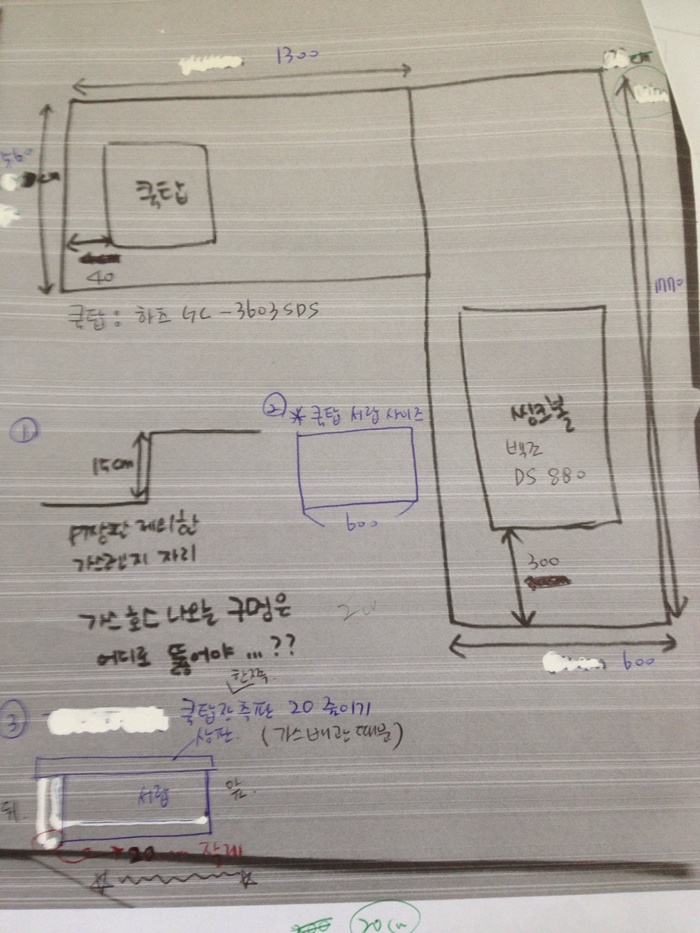 1300
560
쿡탑
40
쿡탑 : 하츠 GC - 3603SDS
1770
씽크볼
백조
DS 880
300
600
①
15cm
제외한
가스렌지 자리
② * 쿡탑 서랍 사이즈
600
가스 호스 나오늘 구멍은
어디로 뚫어야 ...??
한쪽
③ 쿡탑장 측판 20 줄이기
상판. (가스배관 때문)
뒤.
서랍
앞.
20mm 작게
20cm